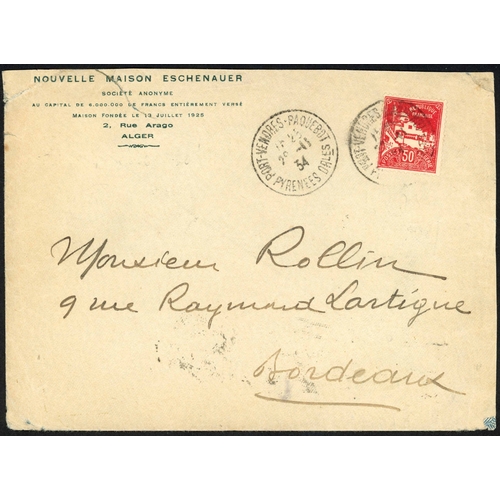 NOUVELLE MAISON ESCHENAUER
SOCIÉTÉ ANONYME
AU CAPITAL DE 6.000.000 DE FRANCS ENTIÈREMENT VERSÉ
MAISON FONDÉE LE 13 JUILLET 1925
2, Rue Arago
ALGER
PORT-VENDRES-PAQUEBOT
34
PYRENEES ORLES
PORT-VENDRES
50
Monsieur Rollin
9 rue Raymond Lartigue
Bordeaux